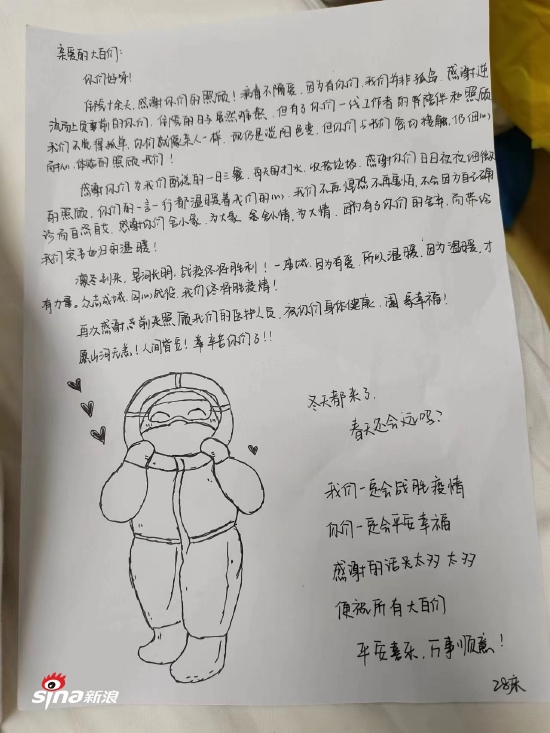 亲爱的大白们：
你们好呀！
住院十余天，感谢你们的照顾！病毒不隔爱，因为有你们，我们并非孤岛。感谢逆
流而上负重前行的你们，住院的日子虽然难熬，但有了你们一线工作者的陪伴和照顾
我们不觉得孤单，你们就像亲人一样，
的照顾我们！
感谢你们为我们配送的一日三餐，每天打水，收拾垃圾，感谢你们日日夜夜细微
的照顾，你们的一言一行都温暖着我们的心，我们不再焦躁不再害怕，不会因为自己确
诊而自怨自艾，感谢你们舍小家，为大家，舍
我们宾至如归的温暖！
凛冬到来，星河长明，战疫终将胜利！一座城，因为有爱，所以温暖，因为温暖，才
有力量。众志成城，同心战役，我们终将胜疫情！
再次感谢照顾我们的医护人员，祝你们身体健康，阖家幸福！
愿山河无恙！人间皆安！辛苦你们了！！
冬天都来了，
春天还会远吗？
我们一定会战胜疫情
你们一定会平安幸福
感谢的话实太多太多
便祝所有大白们
平安喜乐，万事顺意！
28床
sina新浪